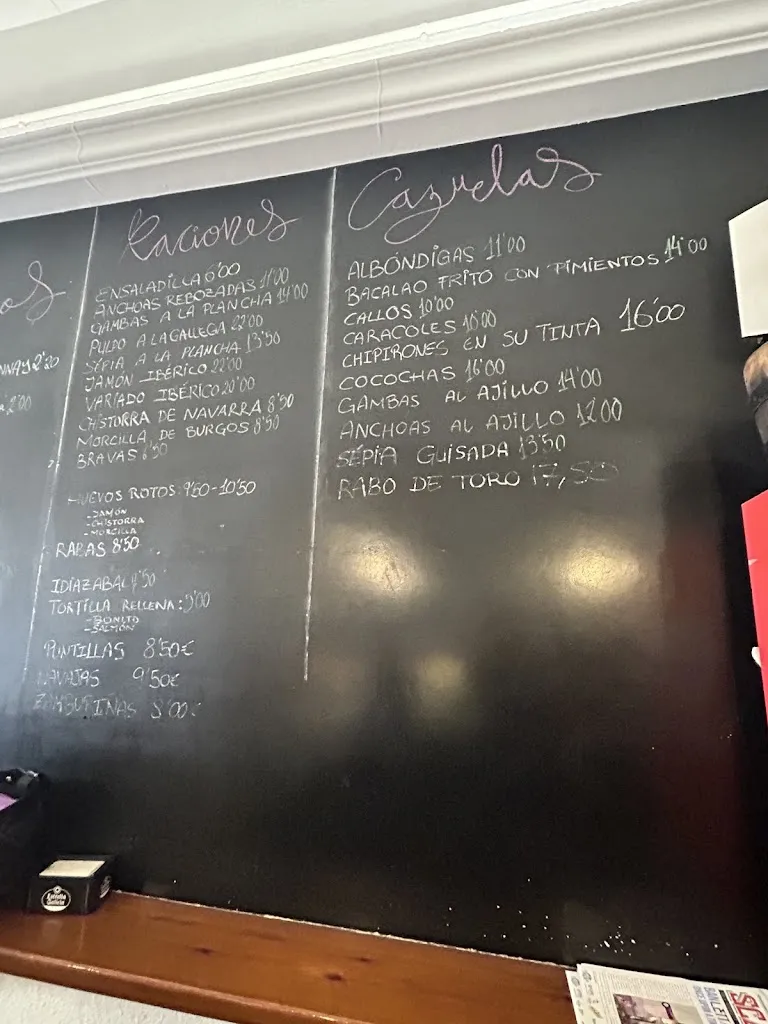 Raciones
ENSALADILLA 6'00
ANCHOAS REBOZADAS 11'00
GAMBAS A LA PLANCHA 14'00
PULPO A LA GALLEGA 22'00
SEPIA A LA PLANCHA 13'50
JAMÓN IBÉRICO 22'00
VARIADO IBÉRICO 20'00
CHISTORRA DE NAVARRA 8'50
MORCILLA DE BURGOS 8'50
BRAVAS 6'50
HUEVOS ROTOS: 9'50-10'50
-JAMÓN
-CHISTORRA
-MORCILLA
RABAS 8'50
IDIAZABAL
TORTILLA RELLENA:
-BONITO
-SALMÓN
PUNTILLAS 8'50€
NAVAJAS 9'50€
ZAMBURIÑAS 8'00€
Cazuelas
ALBÓNDIGAS 11'00
BACALAO FRITO CON PIMIENTOS 14'00
CALLOS 10'00
CARACOLES
CHIPIRONES EN SU TINTA 16'00
COCOCHAS 16'00
GAMBAS AL AJILLO 14'00
ANCHOAS AL AJILLO 12'00
SEPIA GUISADA 13'50
RABO DE TORO 17,50
Estrella
Galicia